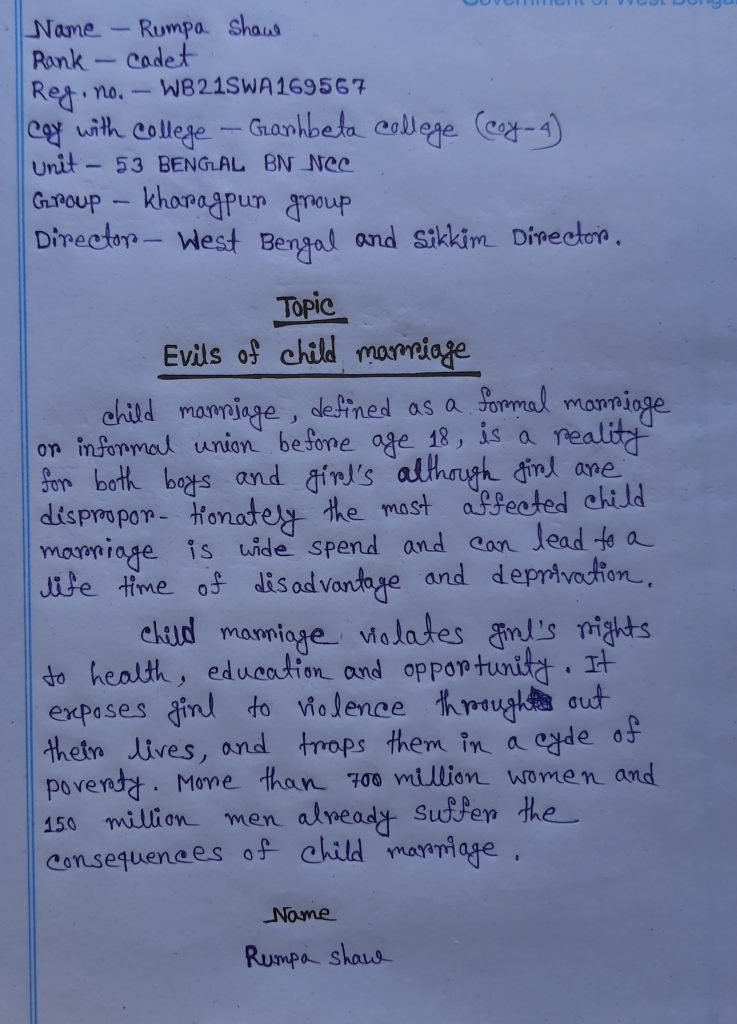 Government of West Bengal
Name – Rumpa Shaw
Rank – Cadet
Reg. no. – WB21SWA169567
Coy with college – Garhbeta college (coy-4)
Unit – 53 BENGAL BN NCC
Group – Kharagpur group
Director – West Bengal and Sikkim Director.
Topic
Evils of child marriage
child marriage, defined as a formal marriage
or informal union before age 18, is a reality
for both boys and girl's although girl are
dispropor- tionately the most affected child
marriage is wide spend and can lead to a
life time of disadvantage and deprivation.
child marriage violates girl's rights
to health, education and opportunity. It
exposes girl to violence through out
their lives, and traps them in a cycle of
poverty. More than 700 million women and
150 million men already suffer the
consequences of child marriage.
Name
Rumpa shaw